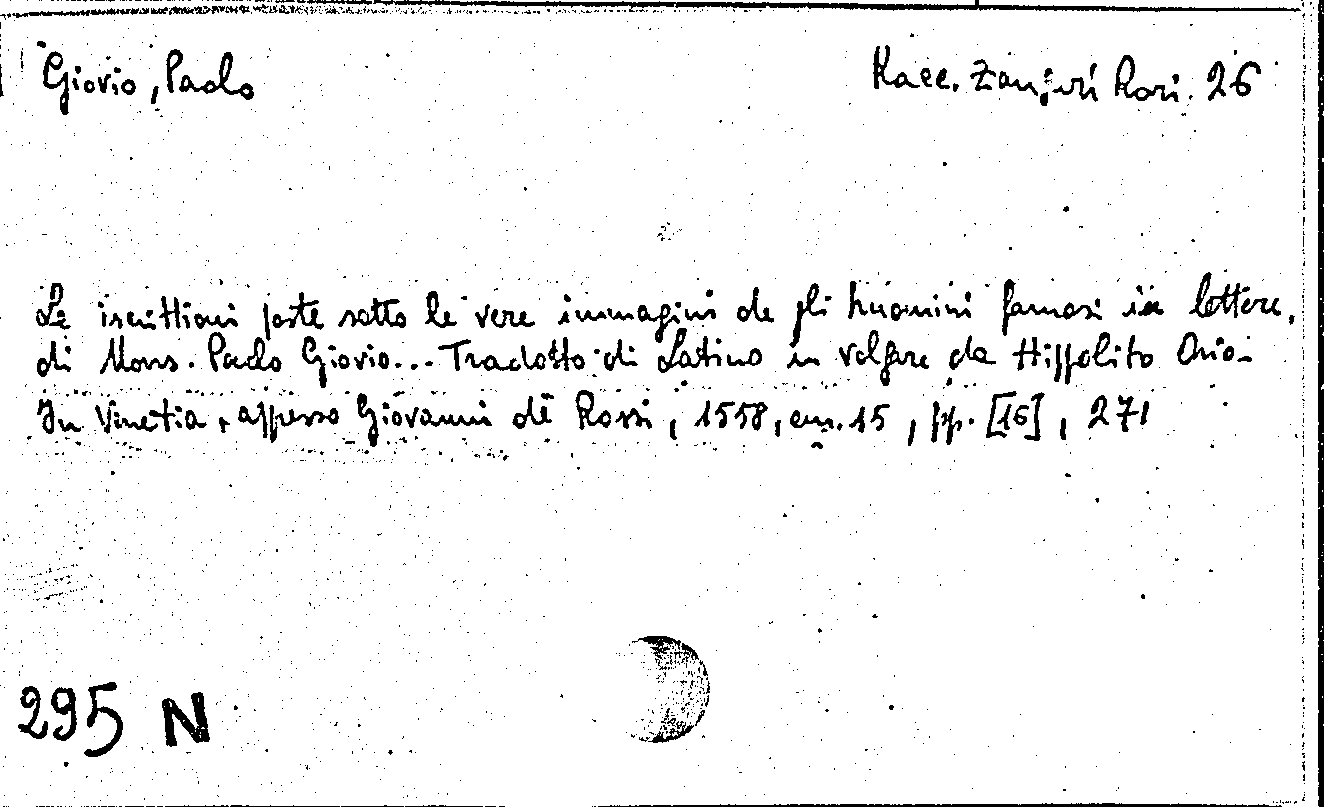 Giovio, Paolo
Racc. Zanfuri Rari. 26
Le iscrittioni poste sotto le vere immagini de gli huomini famosi in lettere,
di Mons. Paolo Giovio... Tradotto di Latino in volgare da Hippolito Orio.
In Vinetia, appresso Giovanni de Rossi, 1558, cm. 15, pp. [16], 271
295 N